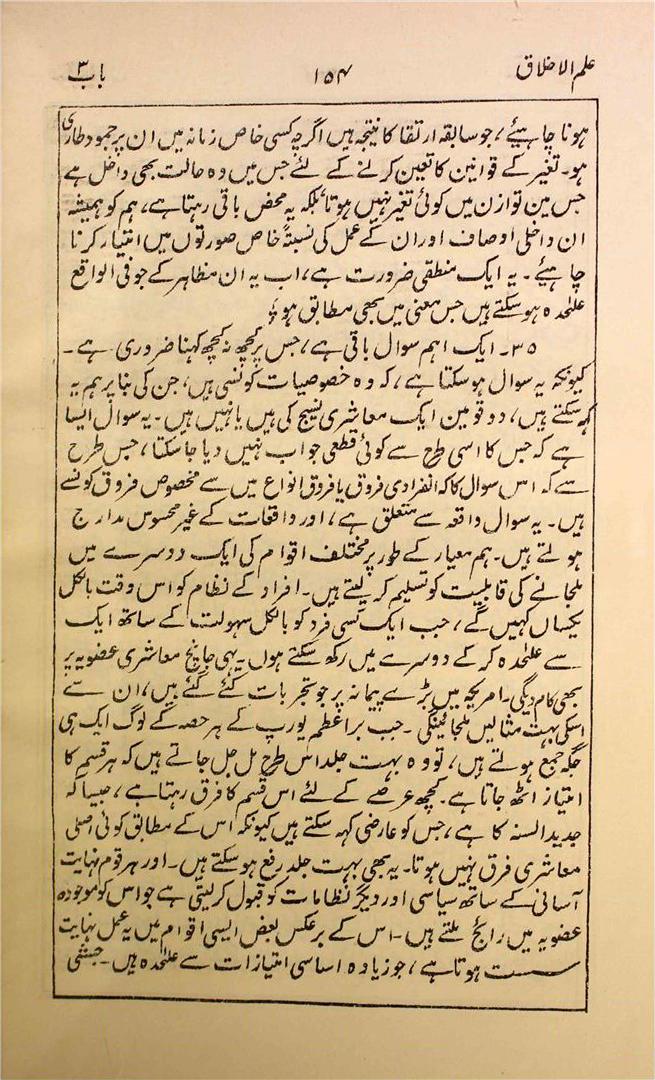 علم الاخلاق ۱۵۴ باب ۳
ہونا چاہیئے، جو سابقہ ارتقا کا نتیجہ ہیں اگرچہ کسی خاص زمانہ میں ان پر جمود طاری
ہو۔ تغیر کے قوانین کا تعین کرنے کے لئے جس میں وہ حالت بھی داخل ہے
جس مین توازن میں کوئی تغیر نہیں ہوتا بلکہ یہ محض باقی رہتا ہے، ہم کو ہمیشہ
ان داخلی اوصاف اور ان کے عمل کی نسبتہً خاص صورتوں میں امتیاز کرنا
چاہیئے۔ یہ ایک منطقی ضرورت ہے، اب یہ ان مظاہر کے جو فی الواقع
علیٰحدہ ہو سکتے ہیں جس معنی میں بھی مطابق ہو؛
۳۵۔ ایک اہم سوال باقی ہے، جس پر کچھ نہ کچھ کہنا ضروری ہے۔
کیونکہ یہ سوال ہو سکتا ہے، کہ وہ خصوصیات کونسی ہیں، جن کی بنا پر ہم یہ
کہہ سکتے ہیں، دو قومین ایک معاشری نسیج کی ہیں یا نہیں ہیں۔ یہ سوال ایسا
ہے کہ جس کا اسی طرح سے کوئی قطعی جواب نہیں دیا جا سکتا، جس طرح
سے کہ اس سوال کا کہ انفرادی فروق یا فروق انواع میں سے مخصوص فروق کونسے
ہیں۔ یہ سوال واقعہ سے متعلق ہے، اور واقعات کے غیر محسوس مدارج
ہوتے ہیں۔ ہم معیار کے طور پر مختلف اقوام کی ایک دوسرے میں
ملجانے کی قابلیت کو تسلیم کر لیتے ہیں۔ افراد کے نظام کو اس وقت بالکل
یکساں کہیں گے، جب ایک نسی فرد کو بالکل سہولت کے ساتھ ایک
سے علیٰحدہ کر کے دوسرے میں رکھ سکتے ہوں یہی جانچ معاشری عضویہ پر
بھی کام دیگی۔ امریکہ میں بڑے پیمانہ پر جو تجربات کئے گئے ہیں، ان سے
اسکی بہت مثالیں ملجائینگی۔ جب براعظم یورپ کے ہر حصہ کے لوگ ایک ہی
جگہ جمع ہوتے ہیں، تو وہ بہت جلد اس طرح مل جل جاتے ہیں کہ ہر قسم کا
امتیاز اٹھ جاتا ہے۔ کچھ عرصے کے لئے اس قسم کا فرق رہتا ہے، جیسا کہ
جدید السنہ کا ہے، جس کو عارضی کہہ سکتے ہیں کیونکہ اس کے مطابق کوئی اصلی
معاشری فرق نہیں ہوتا۔ یہ بھی بہت جلد رفع ہو سکتے ہیں۔ اور ہر قوم نہایت
آسانی کے ساتھ سیاسی اور دیگر نظامات کو قبول کر لیتی ہے جو اس کو موجودہ
عضویہ میں رائج ملتے ہیں۔ اس کے برعکس بعض ایسی اقوام میں یہ عمل نہایت
سست ہوتا ہے، جو زیادہ اساسی امتیازات سے علیٰحدہ ہیں۔ حبشی